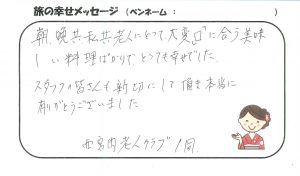 旅の幸せメッセージ（ペンネーム：　　　　　　）
朝、晩共私共老人にとって大変口に合う美味
しい料理ばかりでとても幸せでした。
スタッフの皆さんも親切にして頂き本当に
有がとうございました
西宮内老人クラブ一同